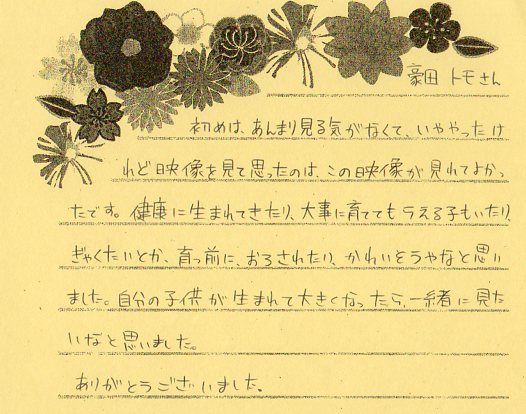 豪田 トモさん
初めは、あんまり見る気がなくて、いややったけ
れど映像を見て思ったのは、この映像が見れてよかっ
たです。健康に生まれてきたり、大事に育ててもらえる子もいたり、
ぎゃくたいとか、育つ前に、おろされたり、かわいそうやなと思い
ました。自分の子供が生まれて大きくなったら、一緒に見た
いなと思いました。
ありがとうございました。